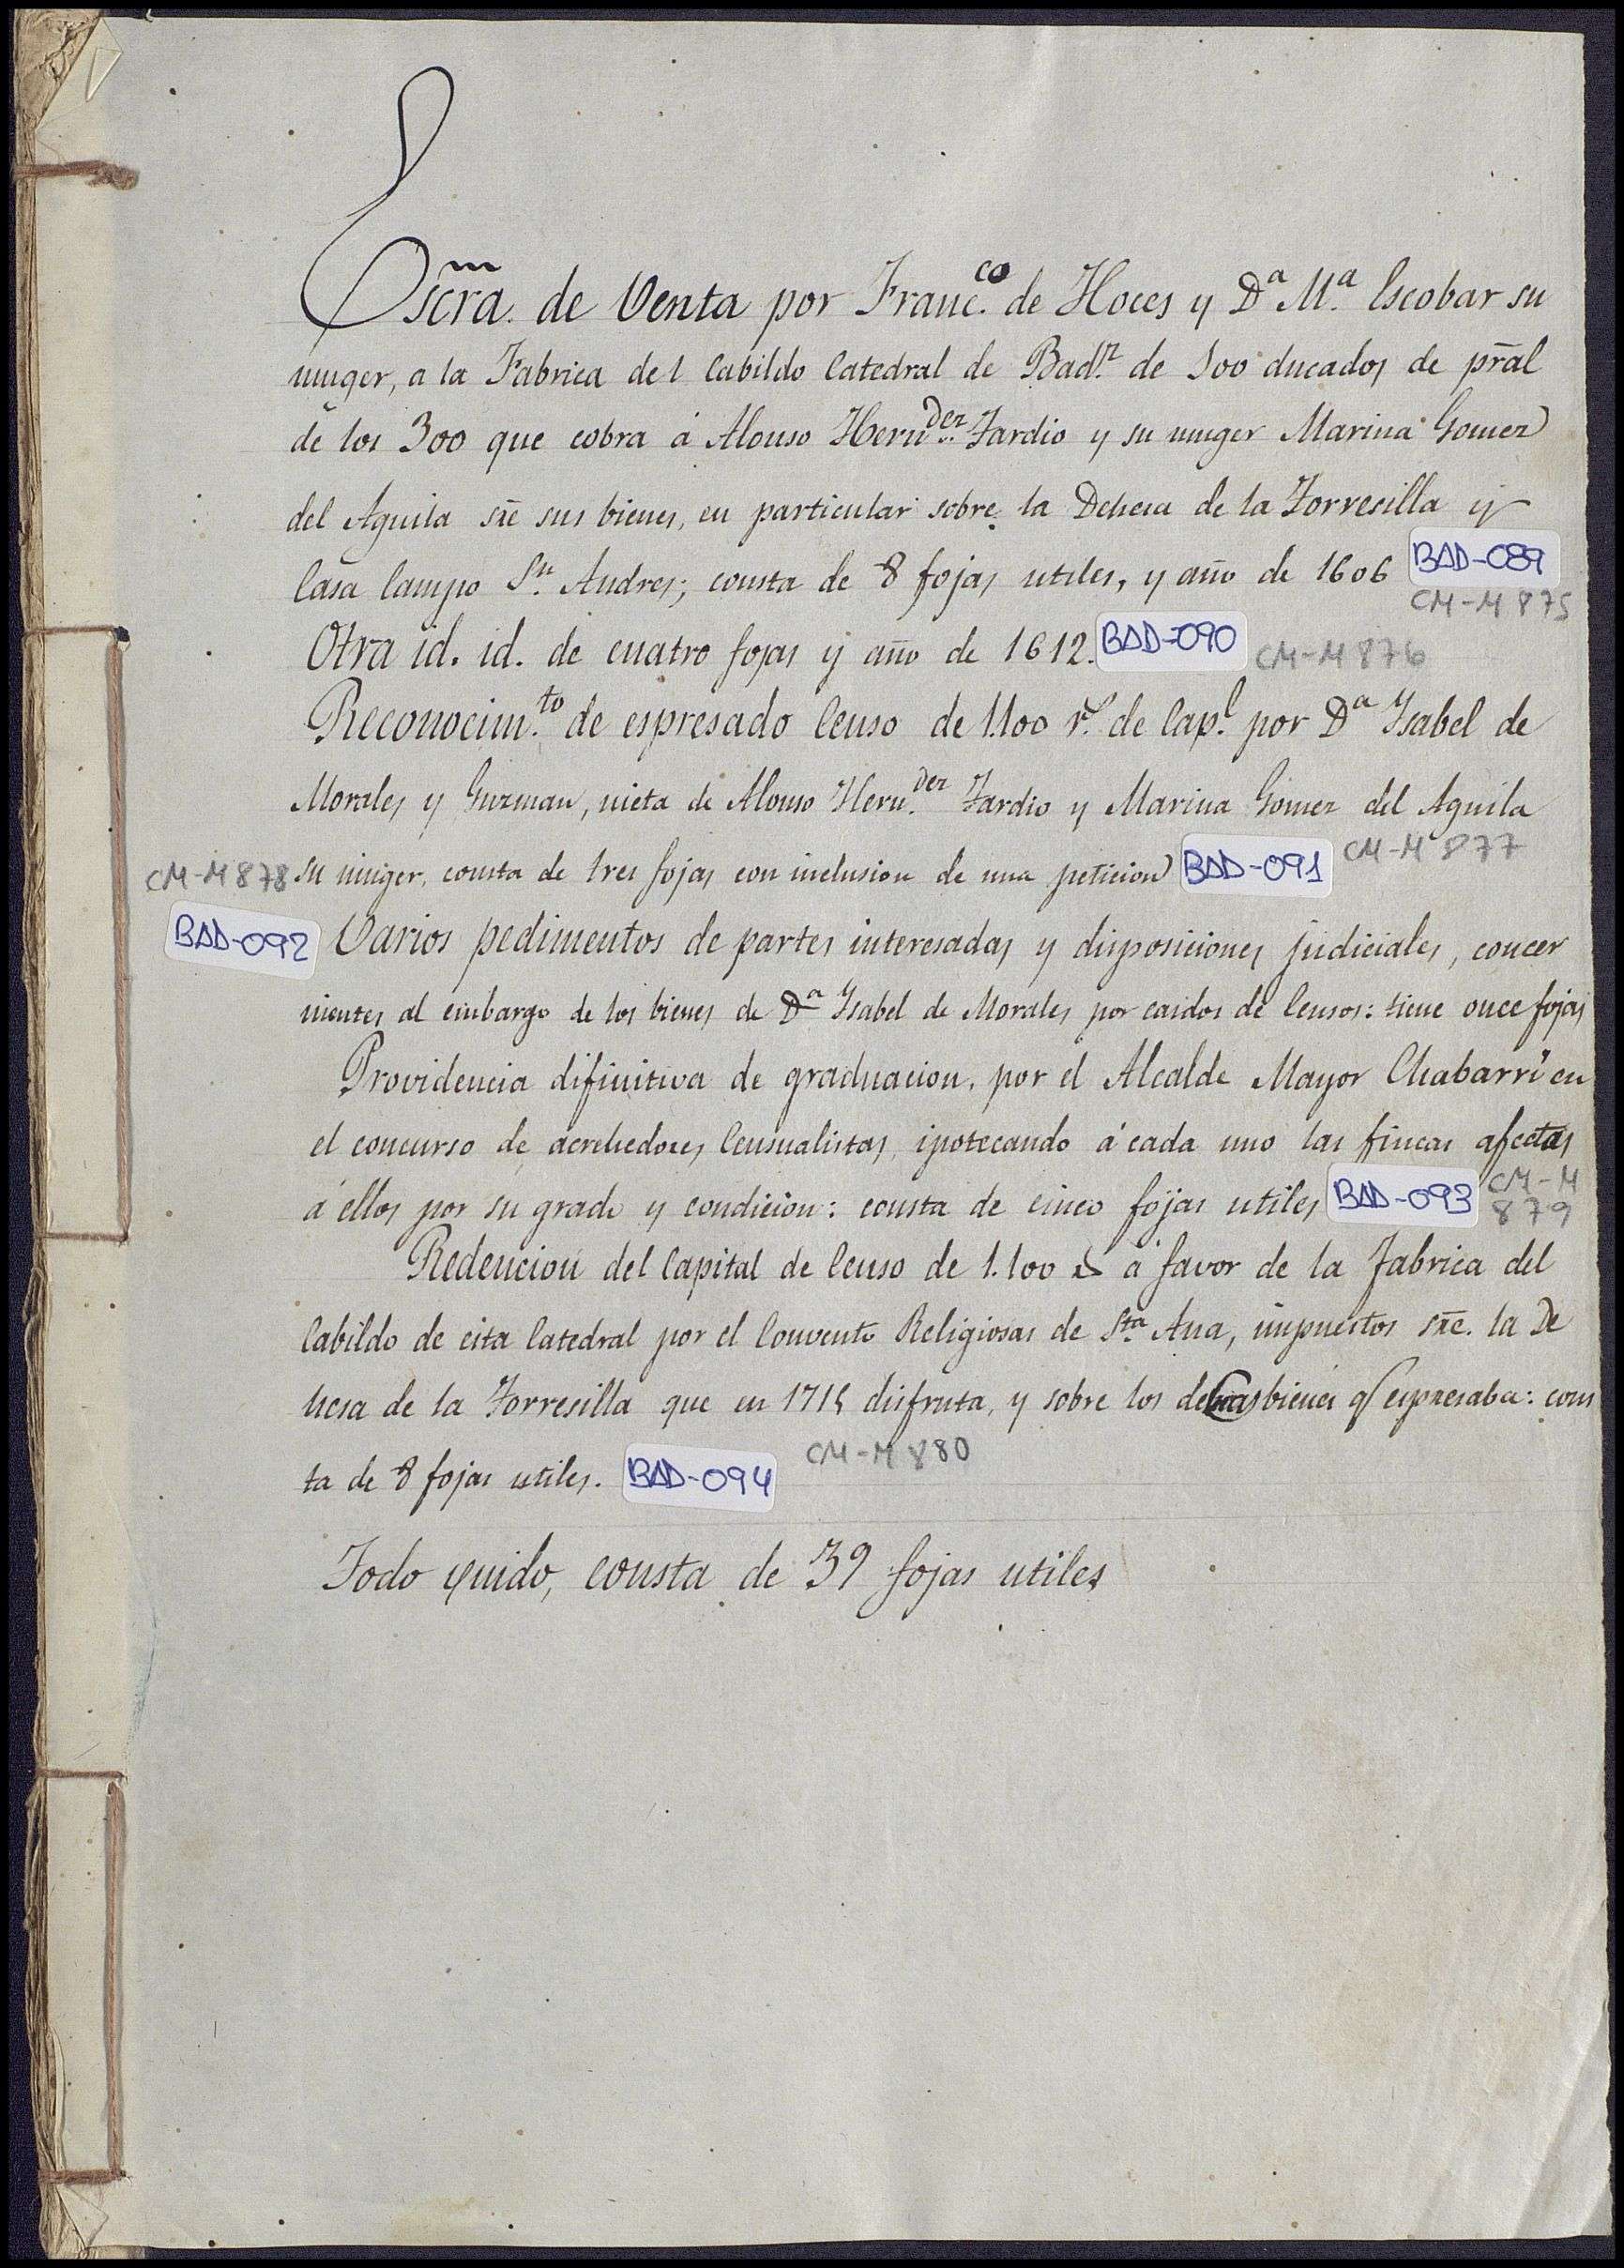 Escra. de Venta por Franc.co de Hoces y Dª Mª Escobar su
muger, a la Fabrica del Cabildo Catedral de Bad.z de 100 ducados de pral
de los 300 que cobra á Alonso Hern.dez Tardio y su muger Marina Gomez
del Aguila sre sus bienes, en particular sobre la Dehesa de la Torresilla y
Casa Campo Sn. Andres; consta de 8 fojas utiles, y año de 1606 BAD-089
CM-M 875
Otra id. id. de cuatro fojas y año de 1612. BAD-090 CM-M 876
Reconocim.to de espresado Censo de 1.100 rs. de Cap.l por Dª Ysabel de
Morales y Guzman, nieta de Alonso Hern.dez Tardio y Marina Gomez del Aguila
CM-M 878 su muger, consta de tres fojas con inclusion de una peticion BAD-091 CM-M 877
BAD-092 Varios pedimentos de partes interesadas y disposiciones judiciales, concer
nientes al embargo de los bienes de Dª Ysabel de Morales por caidos de Censos: tiene once fojas
Providencia difinitiva de graduacion, por el Alcalde Mayor Chabarri en
el concurso de acrehedores Censualistas, ipotecando á cada uno las fincas afectas
á ellos por su grado y condicion: consta de cinco fojas utiles BAD-093 CM-M 879
Redencion del Capital de Censo de 1.100 rs á favor de la Fabrica del
Cabildo de esta Catedral por el Convento Religiosas de Sta. Ana, impuestos sre. la De
hesa de la Torresilla que en 1715 disfruta, y sobre los demas bienes q espresaba: cons
ta de 8 fojas utiles. BAD-094 CM-M 880
Todo qunido, consta de 39 fojas utiles